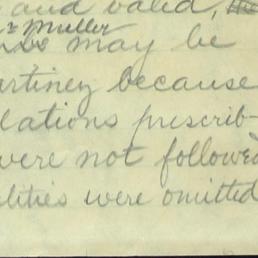 and valid, the
Muller
may be
artinez because
lations prescrib-
were not followed
lities were omitted